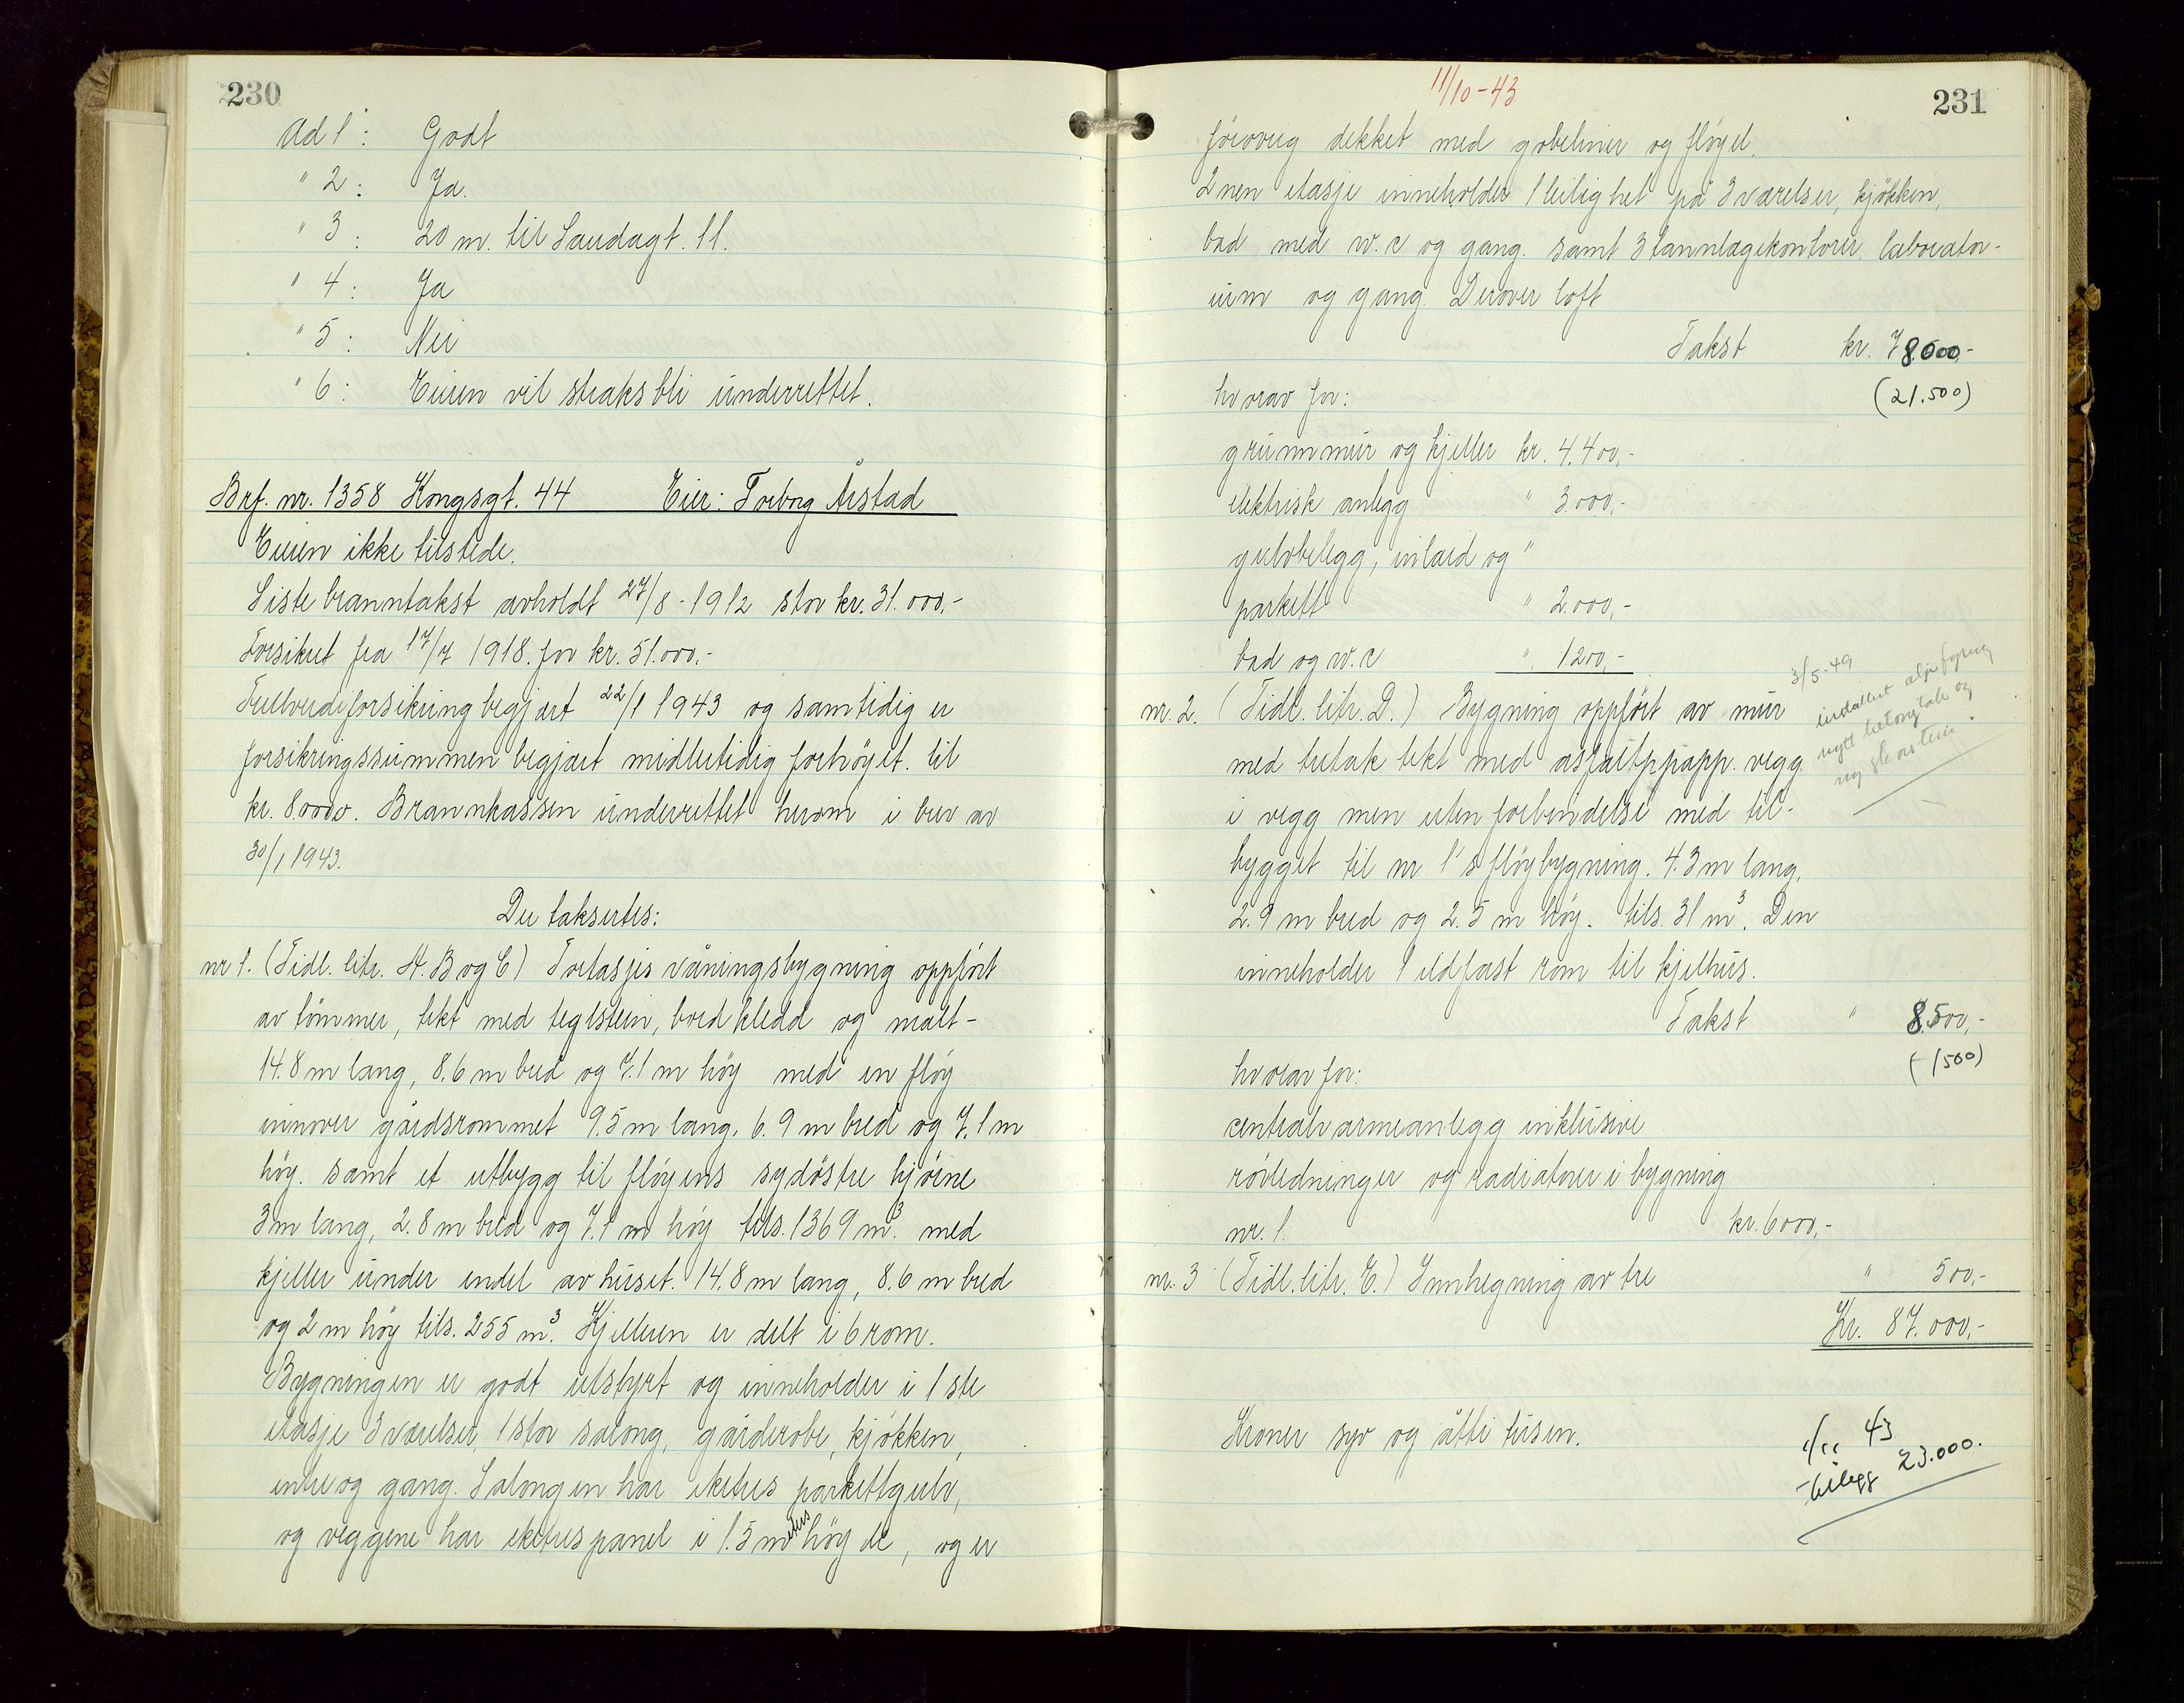 230
Ad 1: Godt
" 2: Ja.
" 3: 20 m. til Laudagt. 11.
" 4: Ja
" 5: Nei
" 6: Eieren vil straks bli underrettet.
Brf. nr. 1358 Kongsgt. 44 Eier: Torborg Årstad
Eieren ikke tilstede.
Siste branntakst avholdt 27/8 - 1912 stor kr. 31.000.-
Forsikret fra 17/7 1918. for kr. 51.000.-
Fullverdiforsikring begjært 22/1 1943 og samtidig er
forsikringssummen begjært midlertidig forhöyet. til
kr. 80000. Brannkassen underrettet herom i brev av
30/1 1943.
Der taksertes:
nr 1. (Tidl. litr. A. B og C) Toetasjes våningsbygning oppfört
av tömmer, tekt med teglstein, bordkledd og malt -
14.8 m lang, 8.6 m bred og 7.1 m höy med en flöy
innover gårdsrommet 9.5 m lang, 6.9 m bred og 7.1 m
höy. samt et utbygg til flöyens sydöstre hjörne
3 m lang, 2.8 m bred og 7.1 m höy tils. 1369 m³. med
kjeller under endel av huset. 14.8 m lang, 8.6 m bred
og 2 m höy tils. 255 m³. Kjelleren er delt i 6 rom.
Bygningen er godt utstyrt og inneholder i 1ste
etasje 3 værelser, 1 stor salong, garderobe, kjökken,
entre og gang. Salongen har eketres parkettgulv,
og veggene har eketrespanel i 1.5 meters höyde, og er
11/10-43
231
föroverig dekket med gobeliner og flöyel.
2nen etasje inneholder 1 leilighet på 3 værelser, kjökken,
bad med w.c og gang. samt 3 tannlægekontorer, laborator-
ium og gang. Derover loft
Takst kr. 78000,-
hvorav for: (21.500)
grunnmur og kjeller kr. 4.400,-
elektrisk anlegg " 3.000,-
gulvbelegg, inlaid og "
parkett " 2.000,-
bad og w.c " 1.200,-
3/5-49
nr. 2. (Tidl. litr. D.) Bygning oppfört av mur
nytt betongtak og
med tretak tekt med asfaltppapp. vegg
i vegg men uten forbindelse med til-
bygget til nr 1's flöybygning. 4.3 m lang,
2.9 m bred og 2.5 m höy. tils. 31 m³. Den
inneholder 1 ildfast rom til kjelhus.
Takst " 8.500,-
hvorav for: (-1500)
centralvarmeanlegg inklusive
rörledninger og radiatorer i bygning
nr. 1. kr. 6000,-
nr. 3 (Tidl. litr. E.) Innhegning av tre " 500,-
Kr. 87.000,-
Kroner syv og åtti tusen.
1/11 43
tillegg 23.000.